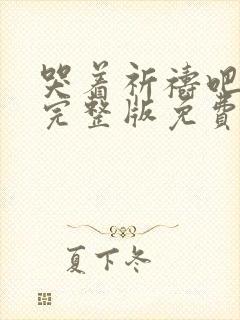 哭着祈祷吧
完整版免費
夏下冬